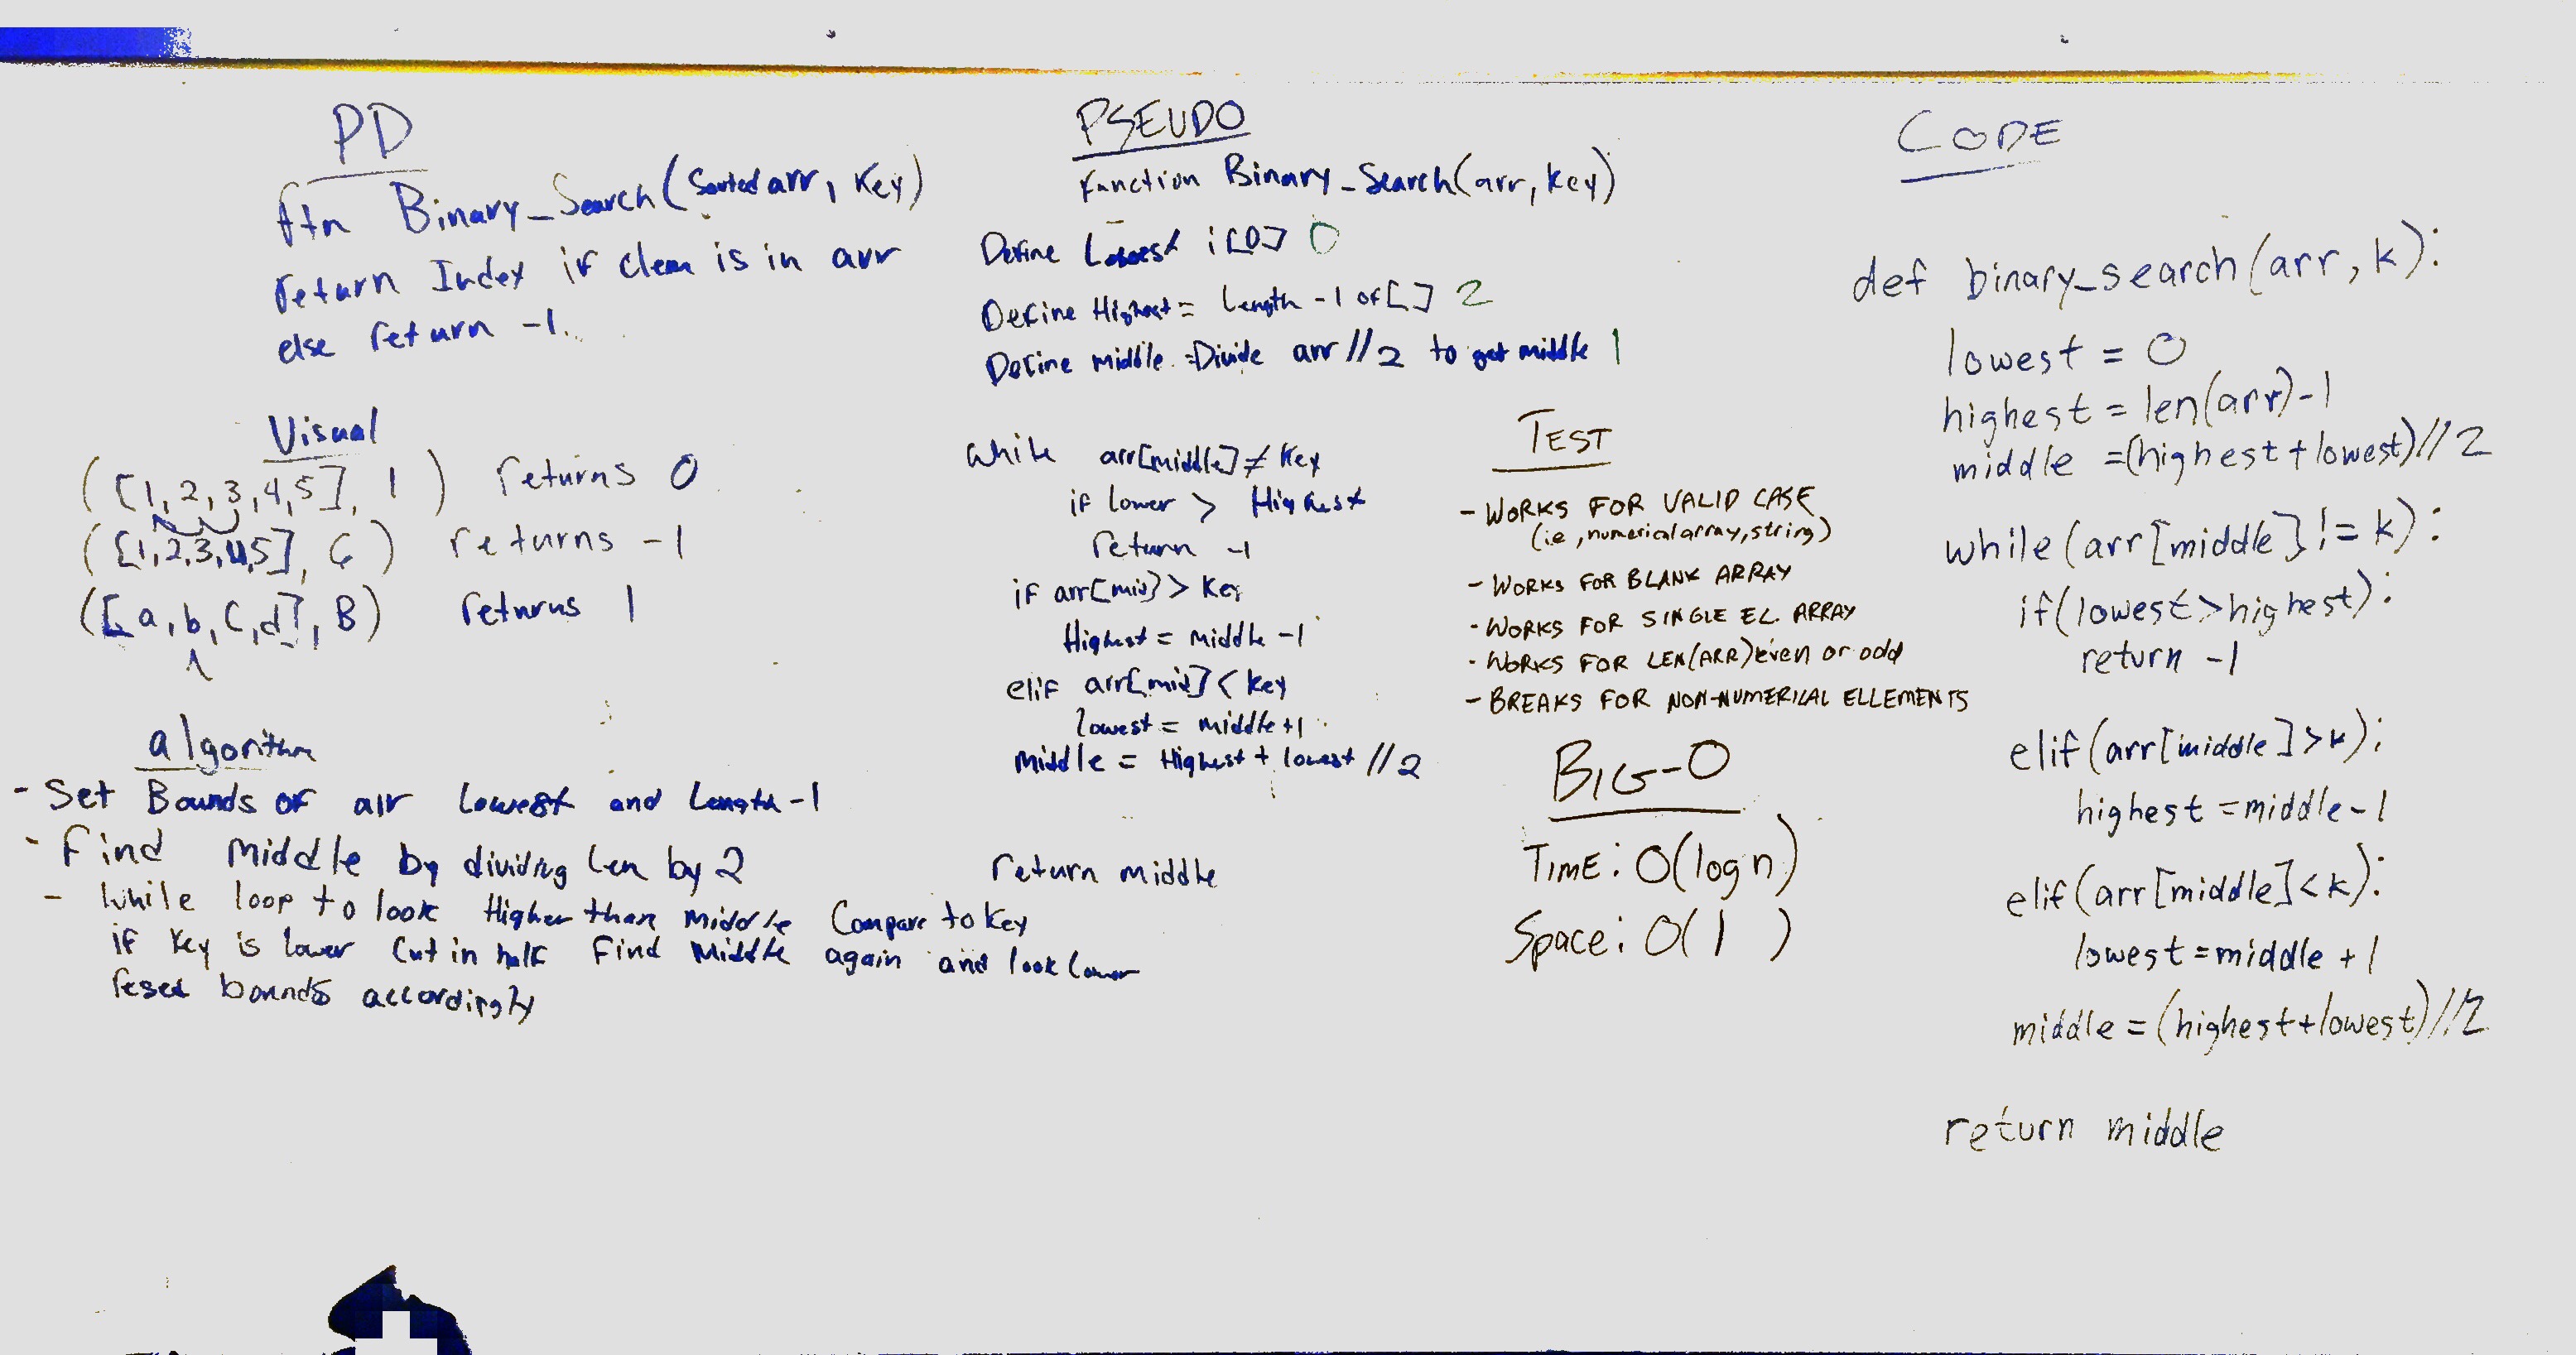 PD
ftn Binary_Search(Sorted arr, Key)
return Index if elem is in arr
else return -1.
Visual
([1,2,3,4,5], 1) returns 0
([1,2,3,4,5], 6) returns -1
([a,b,C,d], B) returns 1
algorithm
- Set Bounds of arr Lowest and Length-1
- Find Middle by dividing Len by 2
- While loop to look Higher than middle Compare to Key
if Key is lower Cut in half Find Middle again and look lower
reset bounds accordingly
PSEUDO
Function Binary_Search(arr, key)
Define Lowest i[0] 0
Define Highest = Length -1 of[] 2
Define middle = Divide arr//2 to get middle 1
While arr[middle] ≠ Key
if lower > Highest
return -1
if arr[mid] > Key
Highest = middle -1
elif arr[mid] < key
lowest = middle +1
Middle = Highest + lowest //2
return middle
TEST
- WORKS FOR VALID CASE
(i.e, numerical array, string)
- WORKS FOR BLANK ARRAY
- WORKS FOR SINGLE EL. ARRAY
- WORKS FOR LEN(ARR) even or odd
- BREAKS FOR NON-NUMERICAL ELLEMENTS
BIG-O
TIME: O(log n)
Space: O(1)
CODE
def binary_search(arr, k):
lowest = 0
highest = len(arr)-1
middle =(highest+lowest)//2
while(arr[middle] != k):
if(lowest>highest):
return -1
elif(arr[middle]>k):
highest =middle-1
elif(arr[middle]<k):
lowest=middle +1
middle = (highest+lowest)//2
return middle